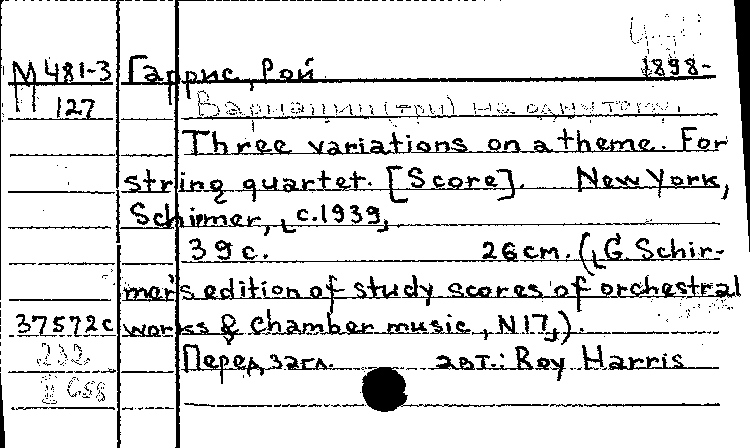 М 481-3 Гаррис, Рой 1898-
127 Вариации (три) на одну тему.
Three variations on a theme. For
string quartet. [Score]. New York,
Schirmer, [c.1939]
39 c. 26 cm. ([G Schir-
mer's edition of study scores of orchestral
37572c works & chamber music, N17]).
232 Перед загл. авт.: Roy Harris